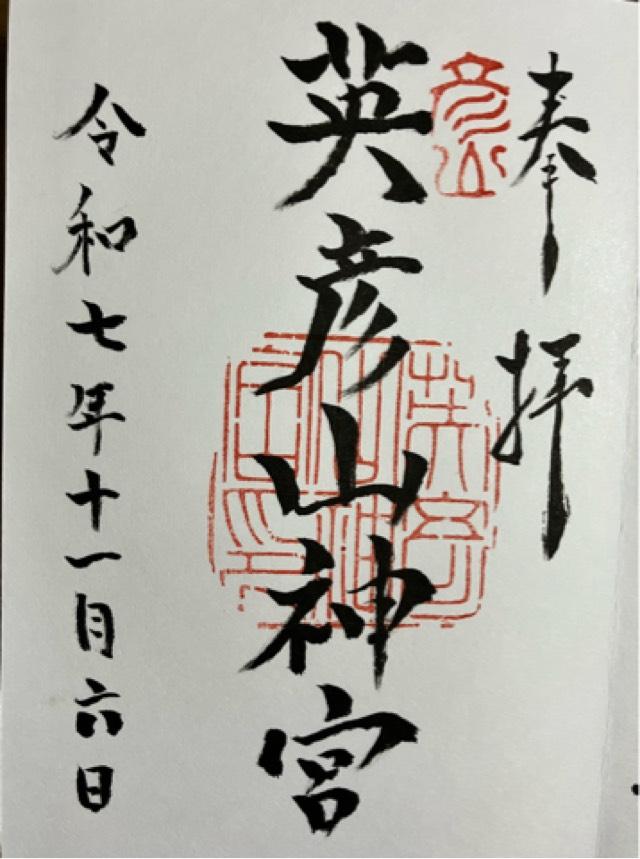 奉拝
彦山
英彦山神宮
令和七年十一月六日